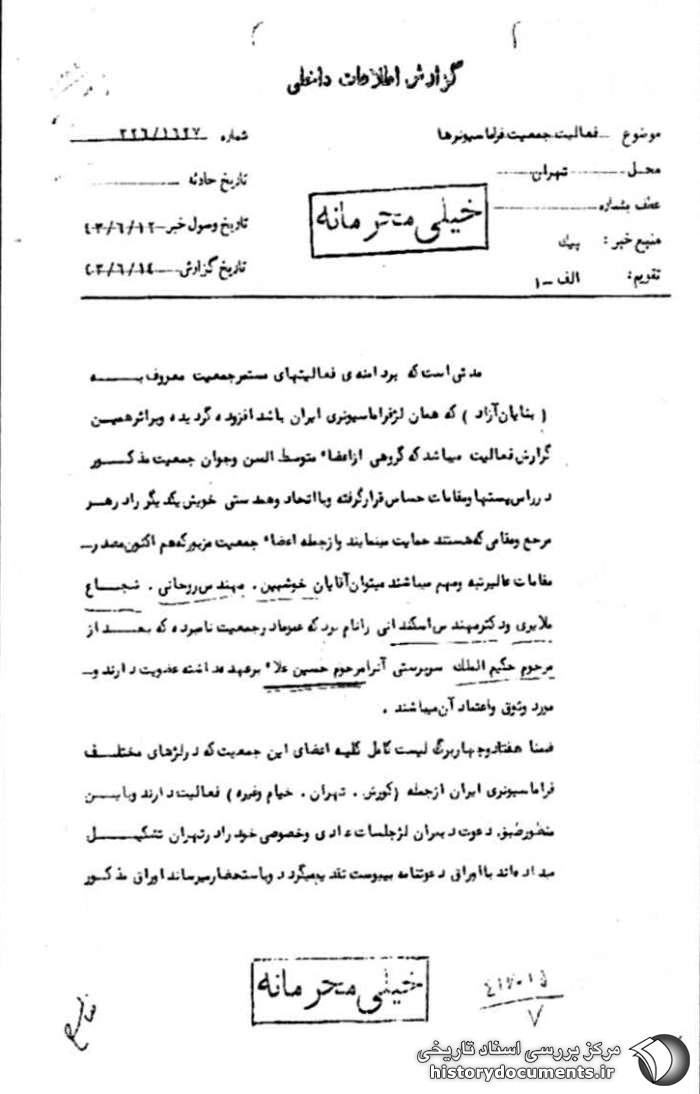 گزارش اطلاعات داخلی
موضوع فعالیت جمعیت فراماسیونرها
شماره ۳۲۶/۱۶۲۷
محل تهران
تاریخ حادثه
عطف بشماره
تاریخ وصول خبر ۴۰۳/۶/۱۲
منبع خبر :
تاریخ گزارش ۴۰۳/۶/۱۴
تقویم : الف -۱
خیلی محرمانه
مدتی است که بر دامنه ی فعالیتهای مستمر جمعیت معروف بـــه
( بنایان آزاد ) که همان لژ فراماسیونری ایران باشد افزوده گردیده و براثر همین
گزارش فعالیت میباشد که گروهی از اعضاء متوسط السن وجوان جمعیت مذکور
در راس پستها ومقامات حساس قرار گرفته وبا اتحاد وهمدستی خویش یکدیگر را در هر
مرجع ومقامی که هستند حمایت مینمایند واز جمله اعضاء جمعیت مزبور که هم اکنون مصدر
مقامات عالیرتبه ومهم میباشند میتوان آقایان خوشبین . مهندس روحانی . شجاع
ملایری ودکتر مهندس اسکندانی را نام برد که عموما در جمعیت نامبرده که بعـــد از
مرحوم حکیم الملك سرپرستی آنرا مرحوم حسین علاء برعهده داشته عضویت دارند و
مورد وثوق واعتماد آن میباشند .
ضمنا هفتاد وچهار برگ لیست کامل کلیه اعضای این جمعیت که در لژهای مختلـــف
فراماسیونری ایران از جمله (کورش . تهران . خیام وغیره ) فعالیت دارند وباین
منظور طبق دعوت دبیران لژ جلسات عادی وخصوصی خود را در تهران تشکیـــل
میداده اند با اوراق دعوتنامه بپیوست تقدیم میگردد وباستحضار میرساند اوراق مذکور
خیلی محرمانه
۷
مرکز بررسی اسناد تاریخی
historydocuments.ir